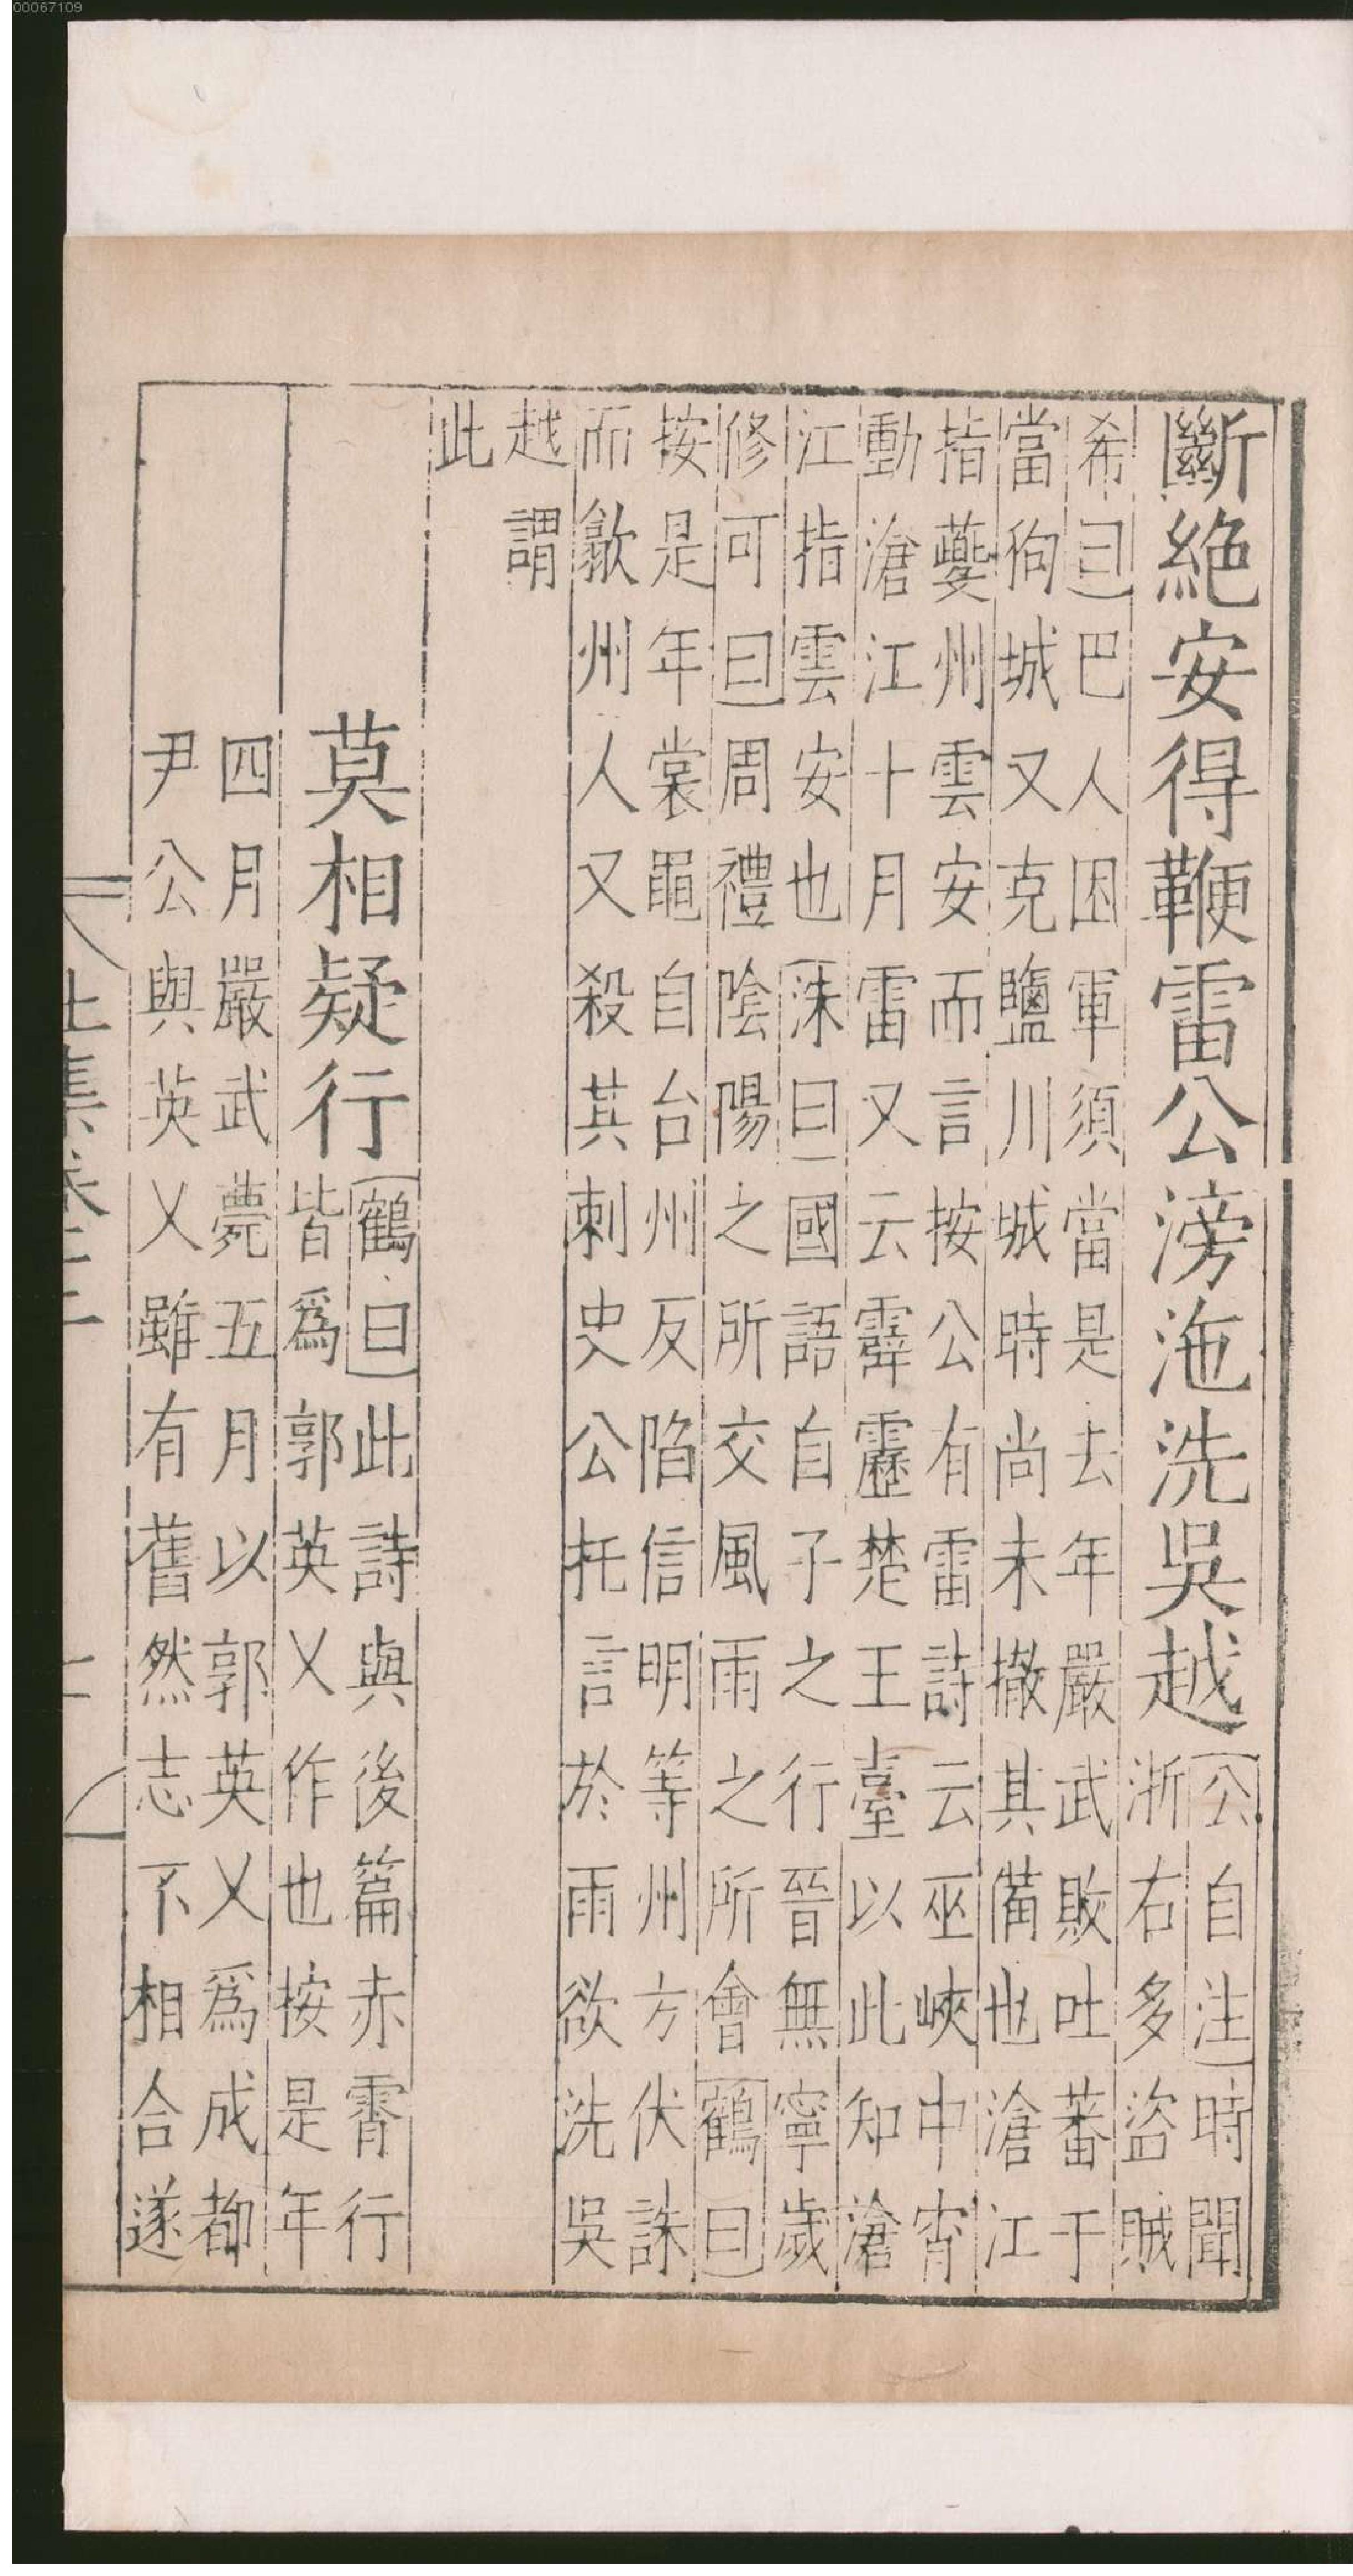 00067109
斷絶安得鞭雷公滂沲洗吳越公自注時聞
浙右多盜賊
希曰巴人困軍須當是去年嚴武敗吐蕃于
當狗城又克鹽川城時尚未撤其備也滄江
指夔州雲安而言按公有雷詩云巫峽中宵
動滄江十月雷又云霹靂楚王臺以此知滄
江指雲安也洙曰國語自子之行晉無寧歲
修可曰周禮陰陽之所交風雨之所會鶴曰
按是年裳黽自台州反陷信明等州方伏誅
而歙州人又殺其刺史公托言於雨欲洗吳
越謂
此
莫相疑行鶴曰此詩與後篇赤霄行
皆爲郭英乂作也按是年
四月嚴武薨五月以郭英乂爲成都
尹公與英乂雖有舊然志不相合遂